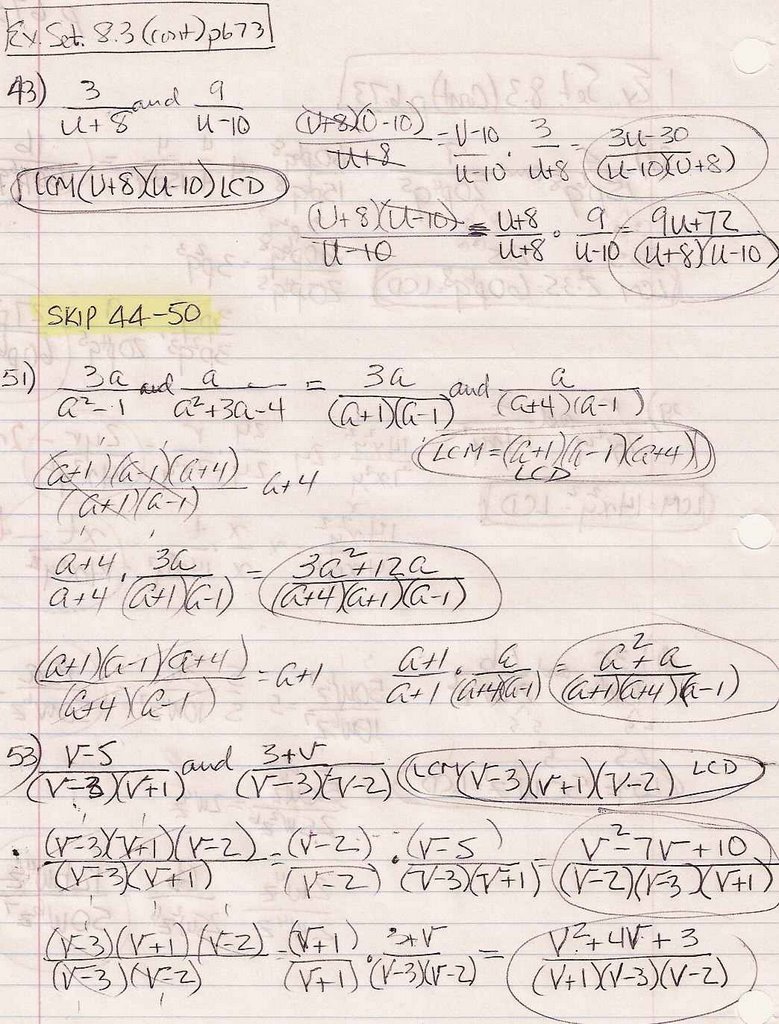 Ex. Set. 8.3 (cont) p673
43) 3/(u+8) and 9/(u-10)
((u+8)(u-10))/(u+8) = (u-10)/(u-10) · 3/(u+8) = (3u-30)/((u-10)(u+8))
LCM (u+8)(u-10) LCD
((u+8)(u-10))/(u-10) = (u+8)/(u+8) · 9/(u-10) = (9u+72)/((u+8)(u-10))
SKIP 44-50
51) 3a/(a²-1) and a/(a²+3a-4) = 3a/((a+1)(a-1)) and a/((a+4)(a-1))
LCM = (a+1)(a-1)(a+4)
LCD
((a+1)(a-1)(a+4))/((a+1)(a-1)) a+4
(a+4)/(a+4) · 3a/((a+1)(a-1)) = (3a²+12a)/((a+4)(a+1)(a-1))
((a+1)(a-1)(a+4))/((a+4)(a-1)) = a+1 (a+1)/(a+1) · a/((a+4)(a-1)) = (a²+a)/((a+1)(a+4)(a-1))
53) (v-5)/((v-3)(v+1)) and (3+v)/((v-3)(v-2)) LCM (v-3)(v+1)(v-2) LCD
((v-3)(v+1)(v-2))/((v-3)(v+1)) = (v-2)/(v-2) · (v-5)/((v-3)(v+1)) = (v²-7v+10)/((v-2)(v-3)(v+1))
((v-3)(v+1)(v-2))/((v-3)(v-2)) = (v+1)/(v+1) · (3+v)/((v-3)(v-2)) = (v²+4v+3)/((v+1)(v-3)(v-2))